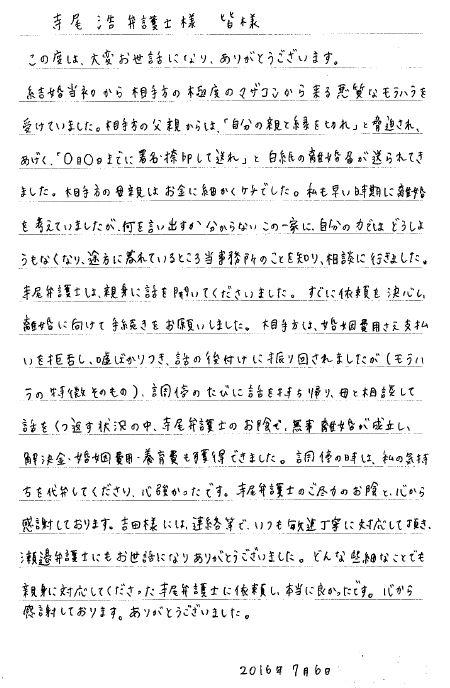 寺尾 浩 弁護士様 皆様
この度は、大変お世話になり、ありがとうございます。
結婚当初から相手方の極度のマザコンから来る悪質なモラハラを
受けていました。相手方の父親からは、「自分の親と縁を切れ」と脅迫され、
あげく、「○日○日までに署名・捺印して送れ」と白紙の離婚届が送られてき
ました。相手方の母親はお金に細かくケチでした。私も早い時期に離婚
を考えていましたが、何を言い出すか分からないこの一家に、自分の力ではどうしよ
うもなくなり、途方に暮れているところ当事務所のことを知り、相談に行きました。
寺尾弁護士は、親身に話を聞いてくださいました。すぐに依頼を決心し、
離婚に向けて手続きをお願いしました。相手方は、婚姻費用さえ支払
いを拒否し、嘘ばかりつき、話の後付けに振り回されましたが（モラハ
ラの特徴そのもの）、調停のたびに話を持ち帰り、母と相談して
話をくつ返す状況の中、寺尾弁護士のお陰で、無事離婚が成立し、
解決金・婚姻費用・養育費も獲得できました。調停の時は、私の気持
ちを代弁してくださり、心強かったです。寺尾弁護士のご尽力のお陰と、心から
感謝しております。吉田様には、連絡等で、いつも敏速丁寧に対応して頂き、
瀬邉弁護士にもお世話になりありがとうございました。どんな些細なことでも
親身に対応してくださった寺尾弁護士に依頼し、本当に良かったです。心から
感謝しております。ありがとうございました。
2016年 7月6日